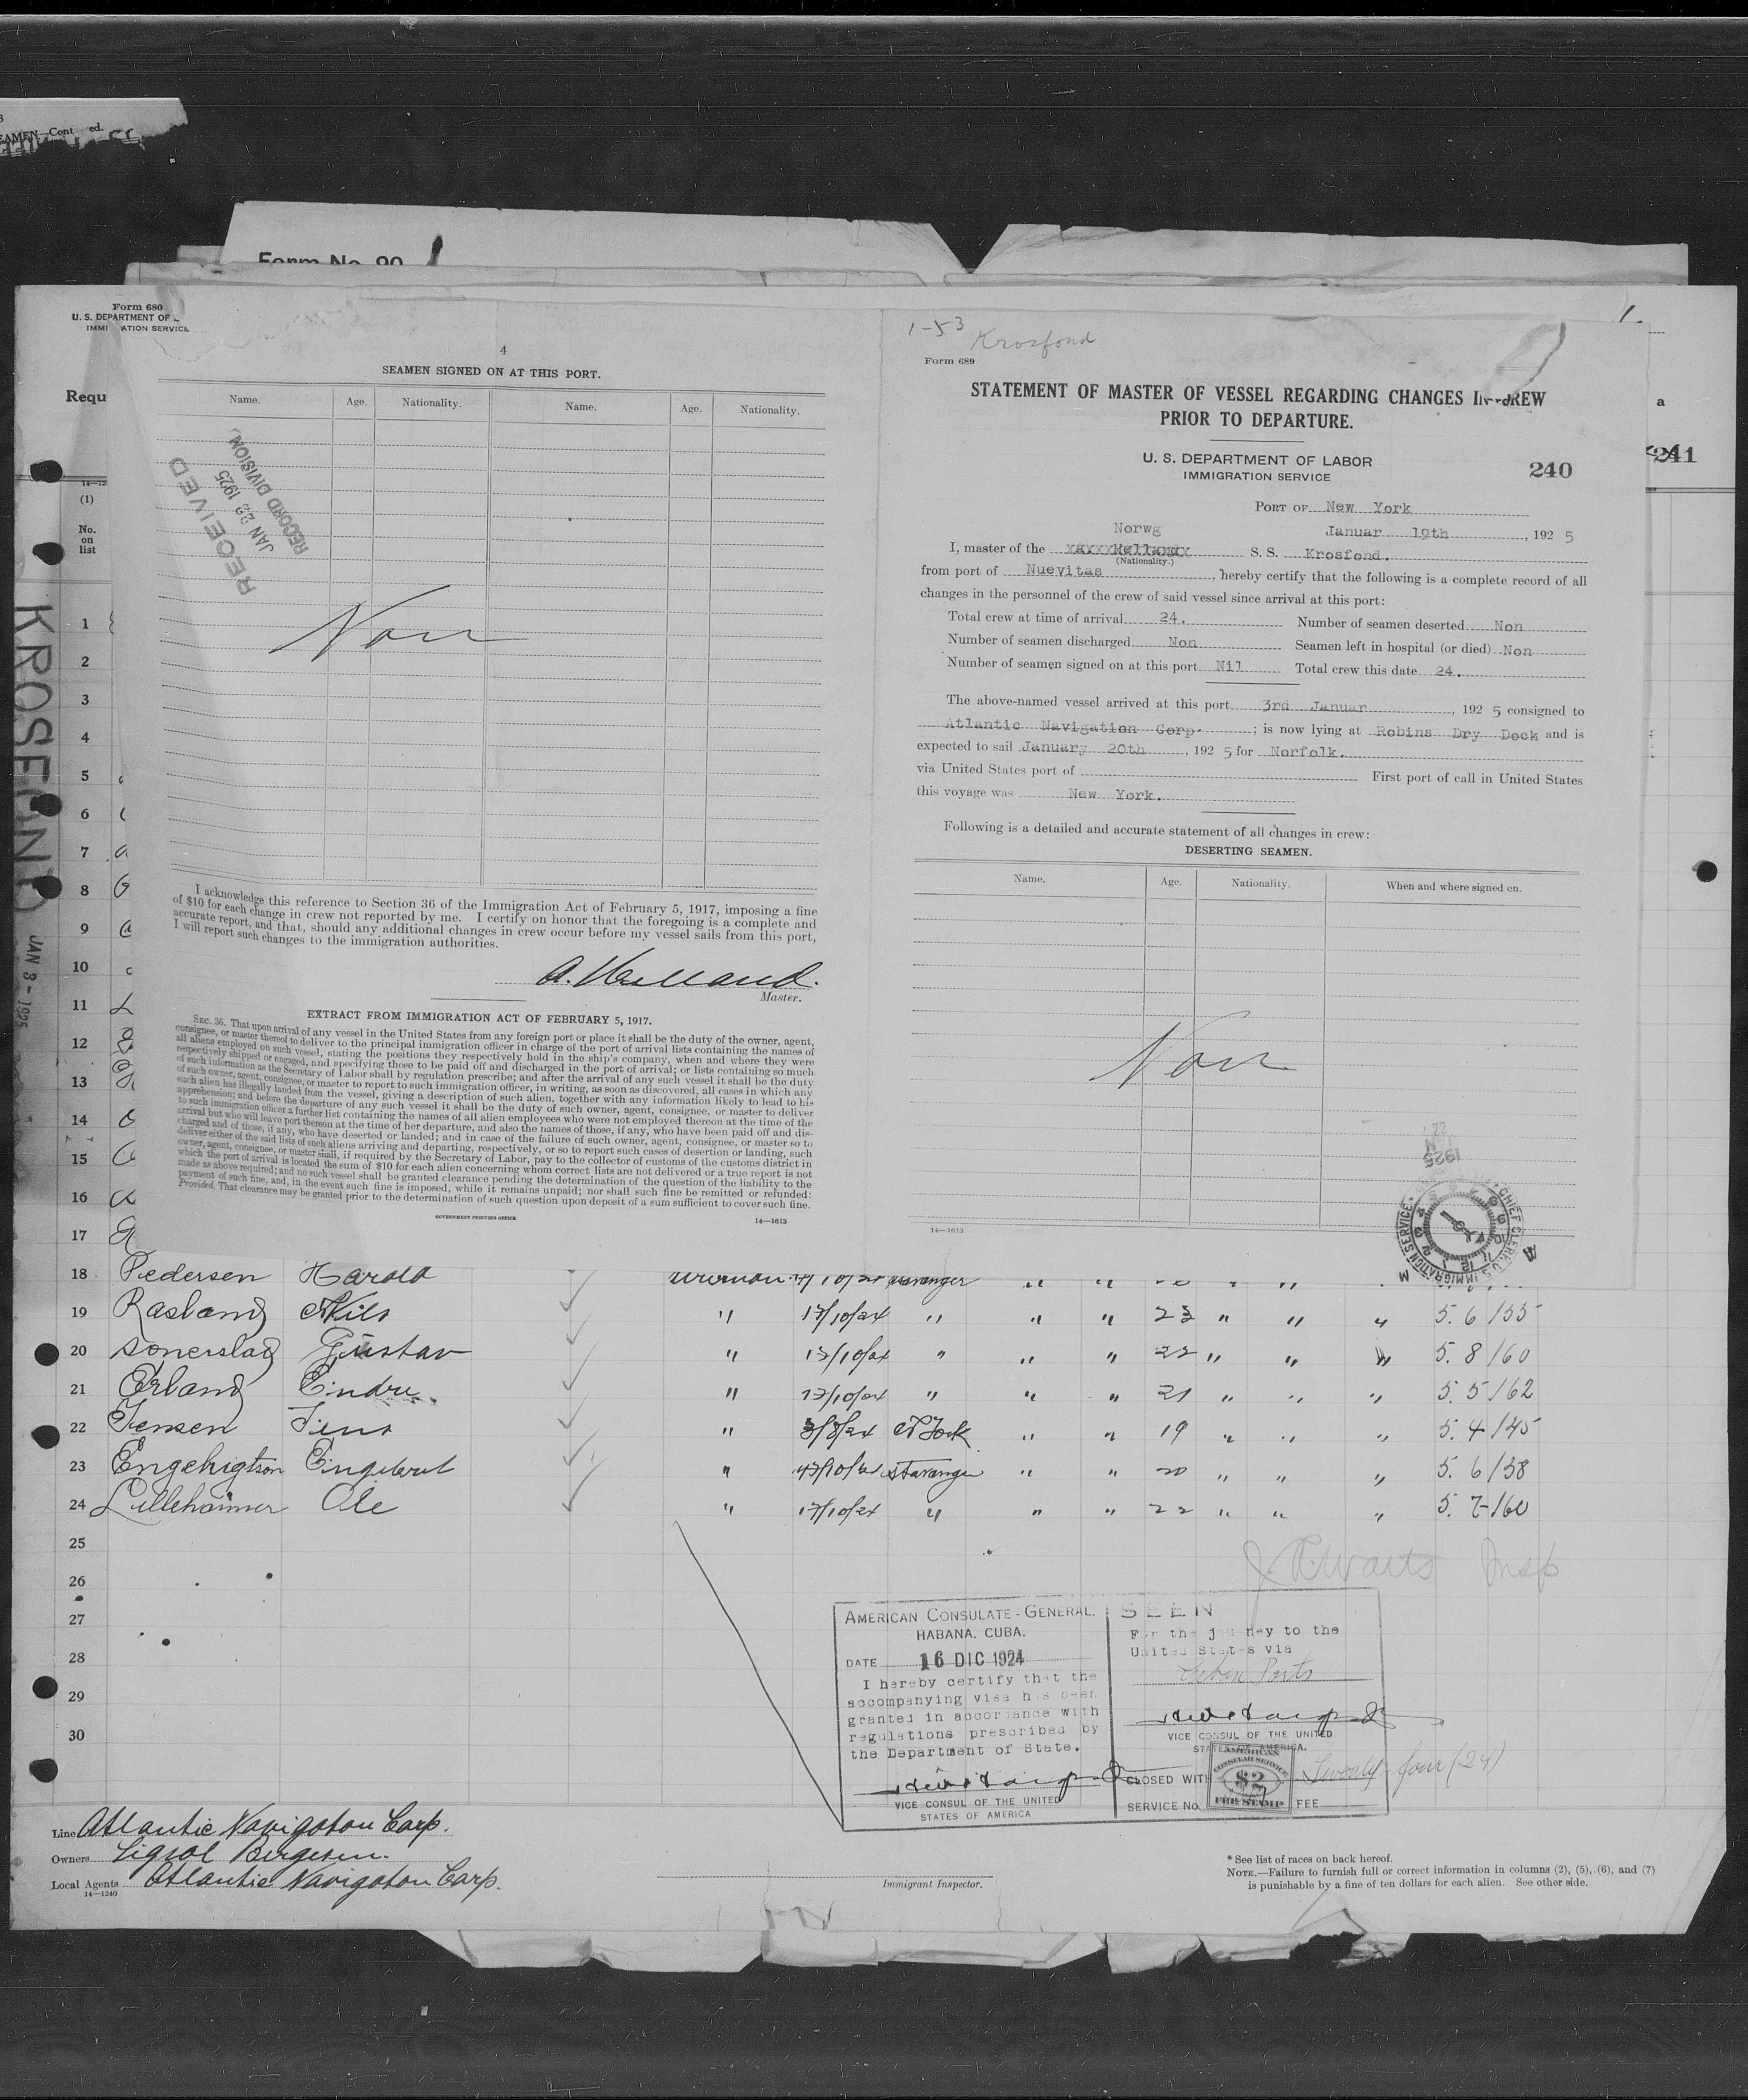 SEAMEN—Cont ed.
Form No. 90
Form 680
U. S. DEPARTMENT OF L
IMMI ATION SERVICE
Requ
14—12
(1)
No.
on
list
KROSFOND
JAN 3 - 1925
4
SEAMEN SIGNED ON AT THIS PORT.
Name. Age. Nationality. Name. Age. Nationality.
RECEIVED
JAN 22 1925
RECORD DIVISION
Non
I acknowledge this reference to Section 36 of the Immigration Act of February 5, 1917, imposing a fine
of $10 for each change in crew not reported by me. I certify on honor that the foregoing is a complete and
accurate report, and that, should any additional changes in crew occur before my vessel sails from this port,
I will report such changes to the immigration authorities.
A. Helland.
Master.
EXTRACT FROM IMMIGRATION ACT OF FEBRUARY 5, 1917.
SEC. 36. That upon arrival of any vessel in the United States from any foreign port or place it shall be the duty of the owner, agent,
consignee, or master thereof to deliver to the principal immigration officer in charge of the port of arrival lists containing the names of
all aliens employed on such vessel, stating the positions they respectively hold in the ship's company, when and where they were
respectively shipped or engaged, and specifying those to be paid off and discharged in the port of arrival; or lists containing so much
of such information as the Secretary of Labor shall by regulation prescribe; and after the arrival of any such vessel it shall be the duty
of such owner, agent, consignee, or master to report to such immigration officer, in writing, as soon as discovered, all cases in which any
such alien has illegally landed from the vessel, giving a description of such alien, together with any information likely to lead to his
apprehension; and before the departure of any such vessel it shall be the duty of such owner, agent, consignee, or master to deliver
to such immigration officer a further list containing the names of all alien employees who were not employed thereon at the time of the
arrival but who will leave port thereon at the time of her departure, and also the names of those, if any, who have been paid off and dis-
charged and of those, if any, who have deserted or landed; and in case of the failure of such owner, agent, consignee, or master so to
deliver either of the said lists of such aliens arriving and departing, respectively, or so to report such cases of desertion or landing, such
owner, agent, consignee, or master shall, if required by the Secretary of Labor, pay to the collector of customs of the customs district in
which the port of arrival is located the sum of $10 for each alien concerning whom correct lists are not delivered or a true report is not
made as above required; and no such vessel shall be granted clearance pending the determination of the question of the liability to the
payment of such fine, and, in the event such fine is imposed, while it remains unpaid; nor shall such fine be remitted or refunded:
Provided, That clearance may be granted prior to the determination of such question upon deposit of a sum sufficient to cover such fine.
GOVERNMENT PRINTING OFFICE 14—1613
1-53 Krosfond
Form 689
STATEMENT OF MASTER OF VESSEL REGARDING CHANGES IN CREW
PRIOR TO DEPARTURE.
U. S. DEPARTMENT OF LABOR
IMMIGRATION SERVICE
240
241
PORT OF New York
Januar 19th, 1925
Norwg
I, master of the S. S. Krosfond.
(Nationality.)
from port of Nuevitas, hereby certify that the following is a complete record of all
changes in the personnel of the crew of said vessel since arrival at this port:
Total crew at time of arrival 24. Number of seamen deserted Non
Number of seamen discharged Non Seamen left in hospital (or died) Non
Number of seamen signed on at this port Nil Total crew this date 24.
The above-named vessel arrived at this port 3rd Januar, 1925 consigned to
Atlantic Navigation Corp.; is now lying at Robins Dry Dock and is
expected to sail January 20th, 1925 for Norfolk.
via United States port of First port of call in United States
this voyage was New York.
Following is a detailed and accurate statement of all changes in crew:
DESERTING SEAMEN.
Name. Age. Nationality. When and where signed on.
Non
14—1613
1925
CHIEF CLERK, U.S. IMMIGRATION SERVICE
1
2
3
4
5
6
7
8
9
10
11
12
13
14
15
16
17
18 Pedersen Harald
19 Rasland Nils " 17/10/24 " " " 23 " " " 5. 6 /55
20 Gustav " 17/10/24 " " " 22 " " " 5. 8 /60
21 Erland Eindre " 17/10/24 " " " 21 " " " 5. 5 /62
22 Jensen Jens " 3/8/24 N York " " 19 " " " 5. 4 /45
23 " 17/10/24 Stavanger " " 20 " " " 5. 6 /58
24 Lillehammer Ole " 17/10/24 " " " 22 " " " 5. 7 /60
25
26
27
28
29
30
Insp
AMERICAN CONSULATE-GENERAL.
HABANA. CUBA.
DATE 16 DIC 1924
I hereby certify that the
accompanying visa has been
granted in accordance with
regulations prescribed by
the Department of State.
VICE CONSUL OF THE UNITED
STATES OF AMERICA
SEEN
For the journey to the
United States via
Cuban Ports
VICE CONSUL OF THE UNITED
STATES OF AMERICA.
CLOSED WITH Twenty-four (24)
SERVICE No. FEE
AMERICAN
CONSULAR SERVICE
$2
FEE STAMP
Line Atlantic Navigaton Corp.
Owners Sigval Bergesen.
Local Agents Atlantic Navigaton Corp.
14—1240
Immigrant Inspector.
* See list of races on back hereof.
NOTE.—Failure to furnish full or correct information in columns (2), (5), (6), and (7)
is punishable by a fine of ten dollars for each alien. See other side.